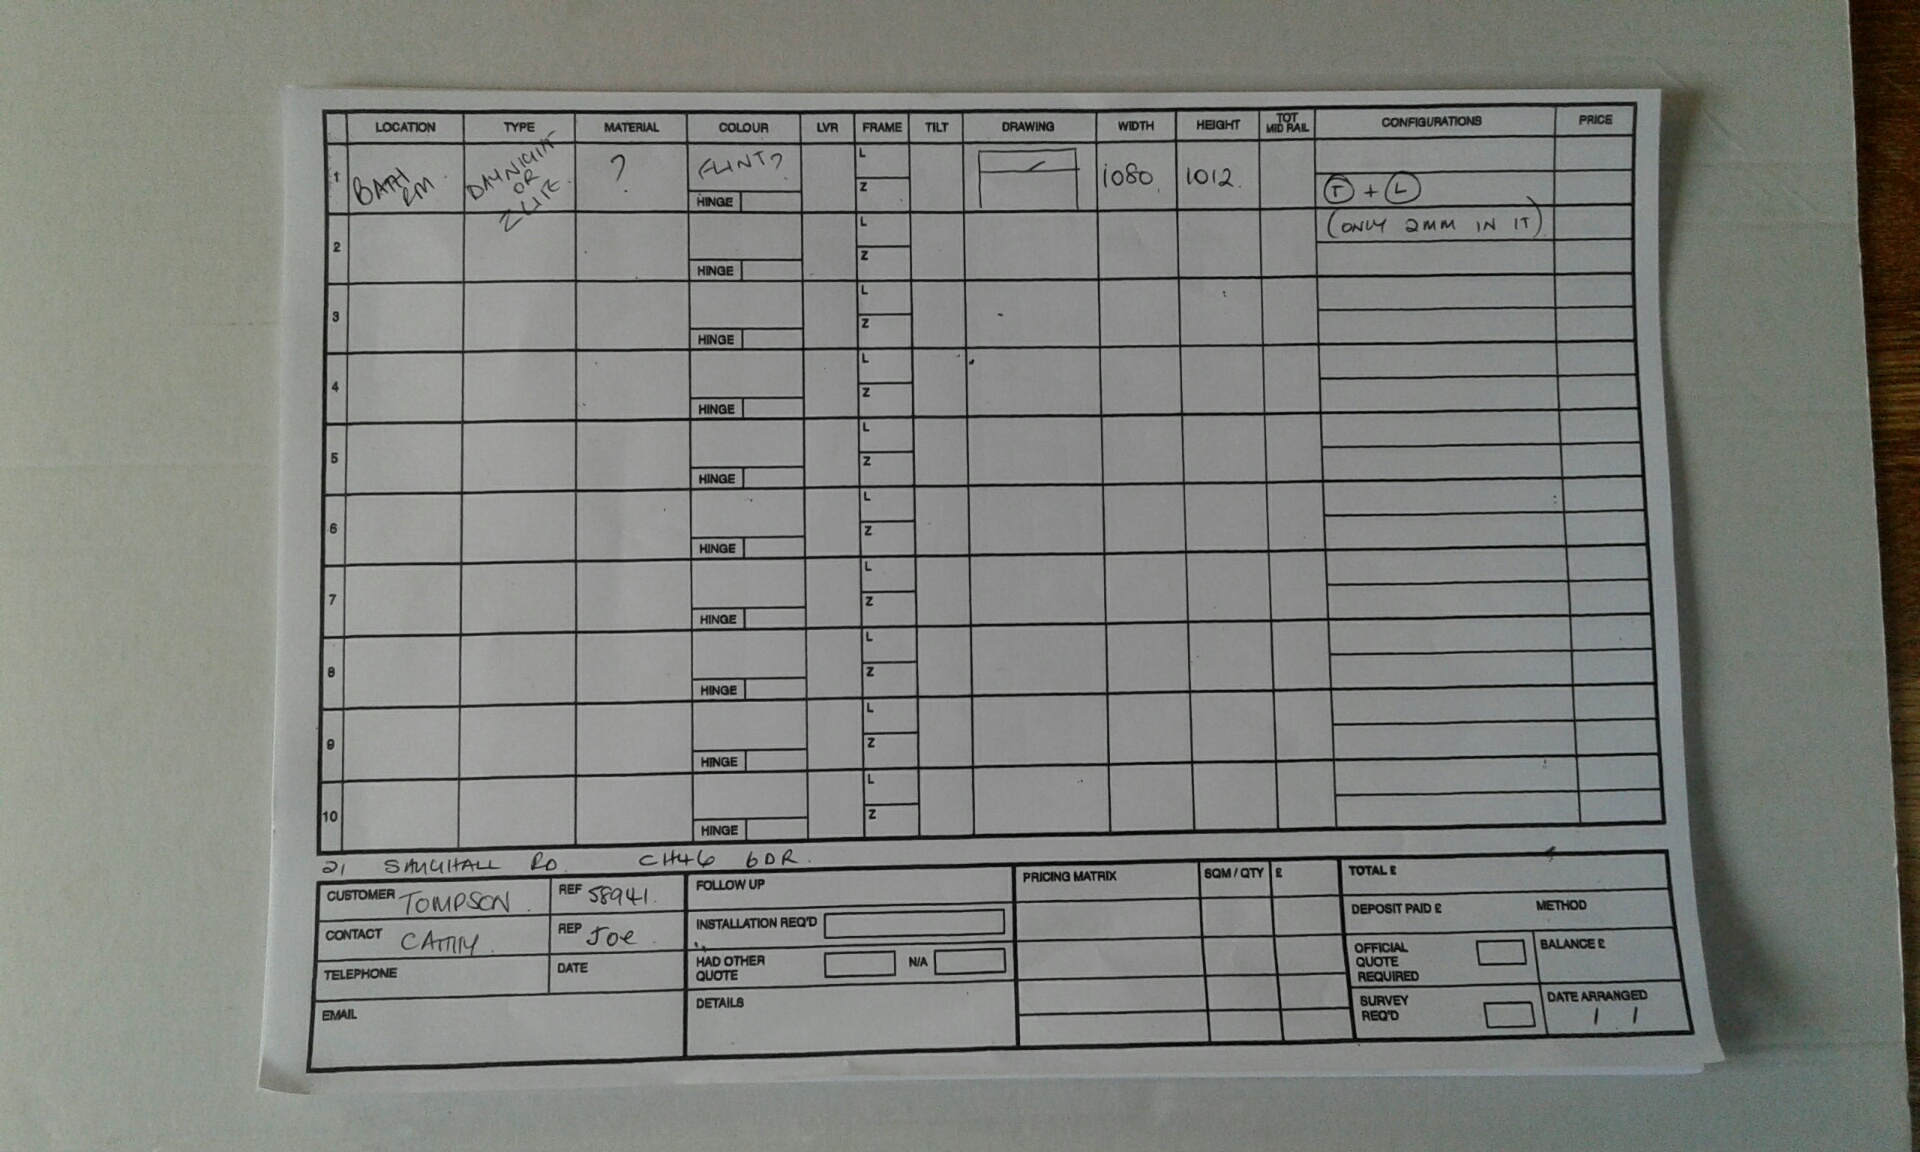 LOCATION TYPE MATERIAL COLOUR LVR FRAME TILT DRAWING WIDTH HEIGHT TOT MID RAIL CONFIGURATIONS PRICE
1 BATH RM. DAYNIGHT OR ZLITE. ? FLINT? HINGE L Z 1080. 1012. T + L
2 HINGE L Z (ONLY 2MM IN IT)
3 HINGE L Z
4 HINGE L Z
5 HINGE L Z
6 HINGE L Z
7 HINGE L Z
8 HINGE L Z
9 HINGE L Z
10 HINGE L Z
21 SAUGHALL RD. CH46 6DR.
CUSTOMER TOMPSON
REF 58941.
CONTACT CATHY.
REP JOE
TELEPHONE
DATE
EMAIL
FOLLOW UP
INSTALLATION REQ'D
HAD OTHER QUOTE
N/A
DETAILS
PRICING MATRIX SQM / QTY £
TOTAL £
DEPOSIT PAID £ METHOD
OFFICIAL QUOTE REQUIRED
BALANCE £
SURVEY REQ'D
DATE ARRANGED
/ /